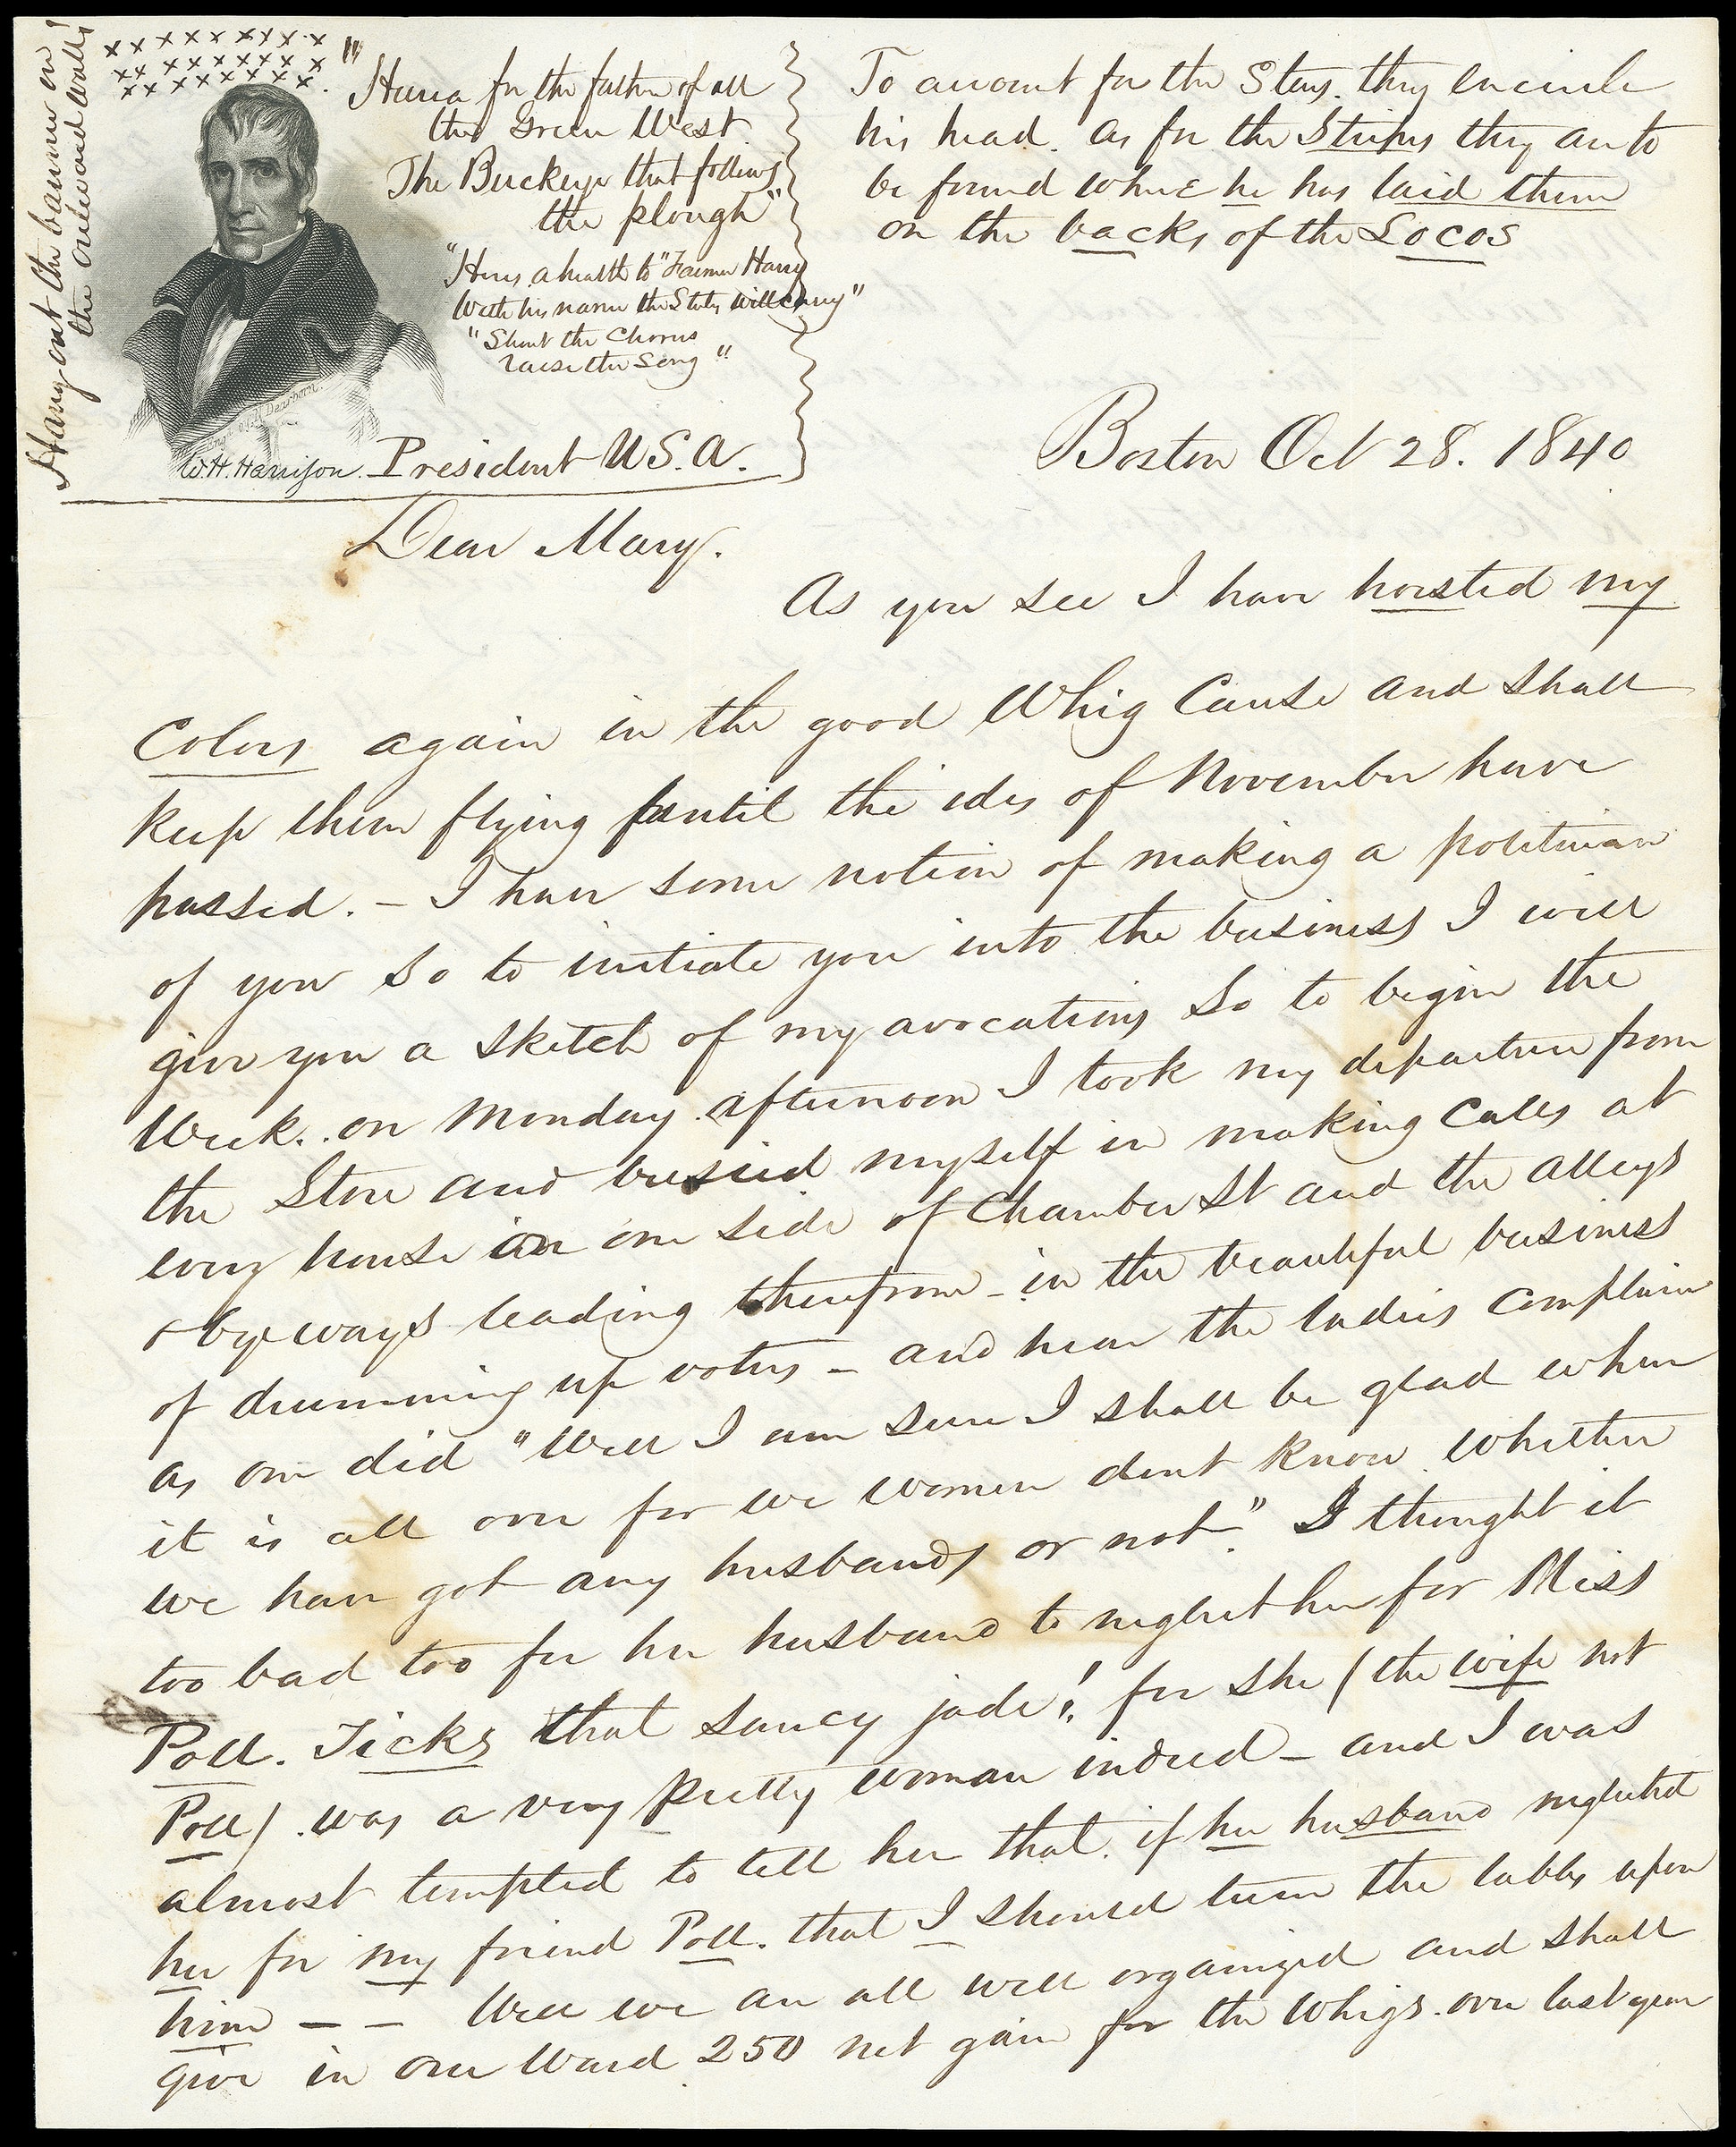 Hang out the banner on
the outward walls!
"Hurra for the father of all
the Green West
The Buckeye that follows
the plough"
"Heres a health to "Farmer Harry
With his name the States will carry"
"Shout the Chorus
raise the Song"
Eng. by N. Dearborn.
W.H. Harrison. President U.S.A.
To account for the Stars. they encircle
his head. as for the Stripes they are to
be found where he has laid them
on the backs of the Locos
Boston Oct 28. 1840
Dear Mary.
As you see I have hoisted my
Colors again in the good Whig Cause and shall
keep them flying until the ides of November have
passed. – I have some notion of making a politician
of you so to initiate you into the business I will
give you a sketch of my avocations So to begin the
Week.. on Monday afternoon I took my departure from
the Store and busied myself in making Calls at
every house on one side of Chamber St and the alleys
& bye ways leading therefrom – in the beautiful business
of drumming up voters – and hear the ladies complain
as one did "Well I am sure I shall be glad when
it is all over for we women dont know whether
we have got any husbands or not." I thought it
too bad too for her husband to neglect her for Miss
Poll. Ticks that saucy jade! for she (the wife not
Poll) was a very pretty woman indeed – and I was
almost tempted to tell her that. if her husband neglected
her for my friend Poll. that I should turn the tables upon
him – – Well we are all well organized and shall
give in our Ward 250 net gain for the Whigs. over last year